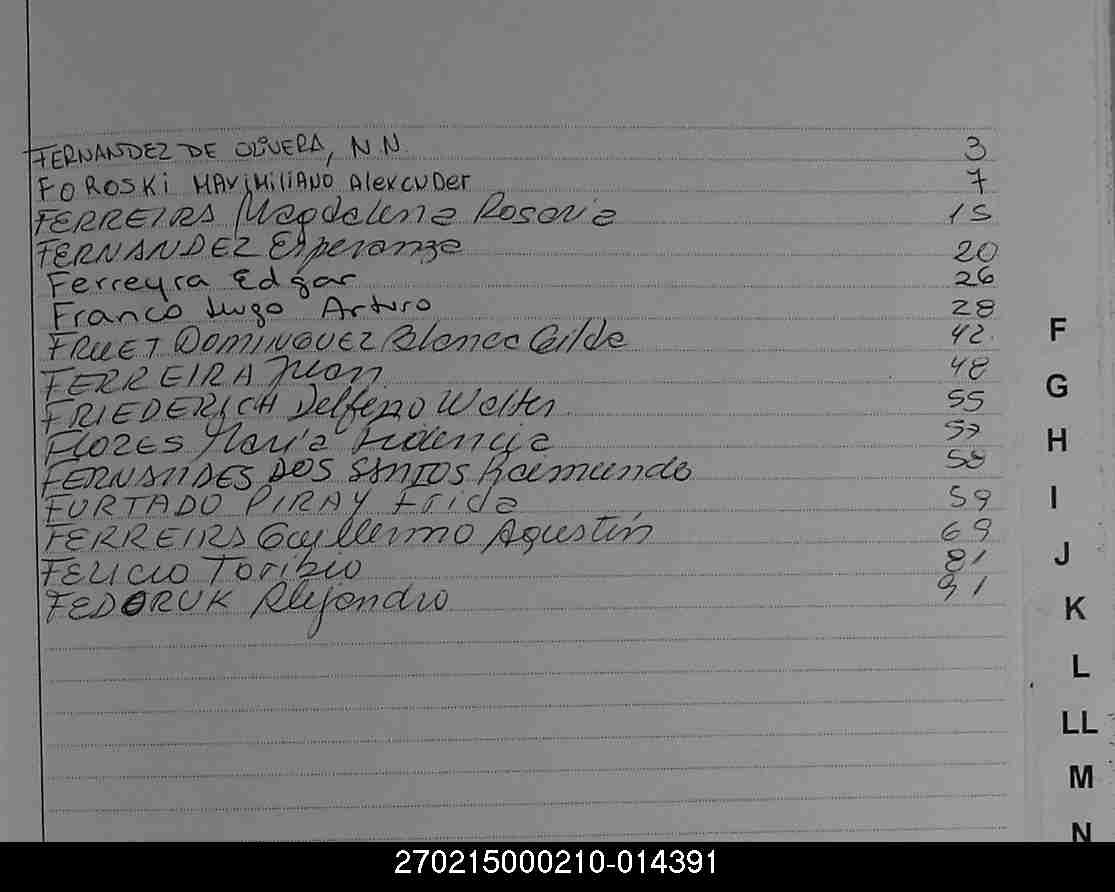 FERNANDEZ DE OLIVERA, N.N. 3
FOROSKi MAXiMiLiANO AlexcNDer 7
FERREIRA Magdalena Rosaria 15
FERNANDEZ Esperanza 20
Ferreyra Edgar 26
Franco Hugo Arturo 28
FRUET DOMINGUEZ Blanca Gilda 42
FERREIRA Juan 48
FRIEDERICH Delfino Walter 55
FLORES María Fidencia 57
FERNANDES DOS SANTOS Raimundo 58
FURTADO PIRAY Frida 59
FERREIRA Guillermo Agustín 69
FELICIO Toribio 81
FEDORUK Alejandro 91
F
G
H
I
J
K
L
LL
M
N
270215000210-014391